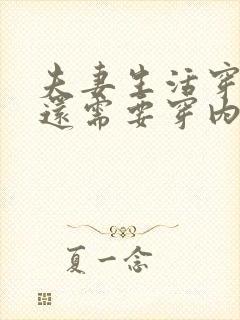 夫妻生活穿
還需要穿内
夏一念